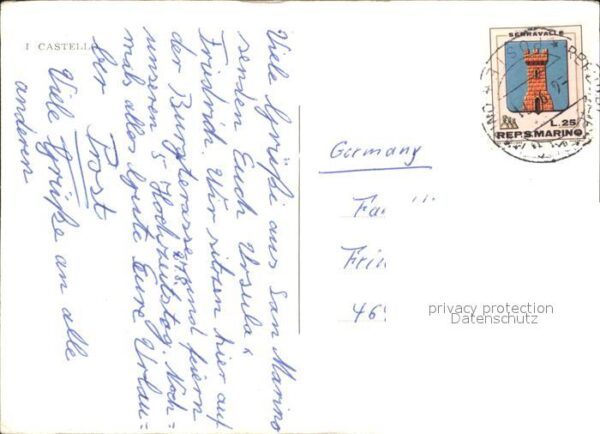 I CASTELL
Viele Grüße aus San Marino
senden Euch Ursula &
Friedrich. Wir sitzen hier auf
der Burgterasse und feiern
unseren 5. Hochzeitstag. Noch=
mals alles Gute Eure Urlau=
ber Prost
Viele Grüße an alle
anderen
SERRAVALLE
L.25
REP.S.MARINO
Germany
Fa
Frie
46
privacy protection
Datenschutz